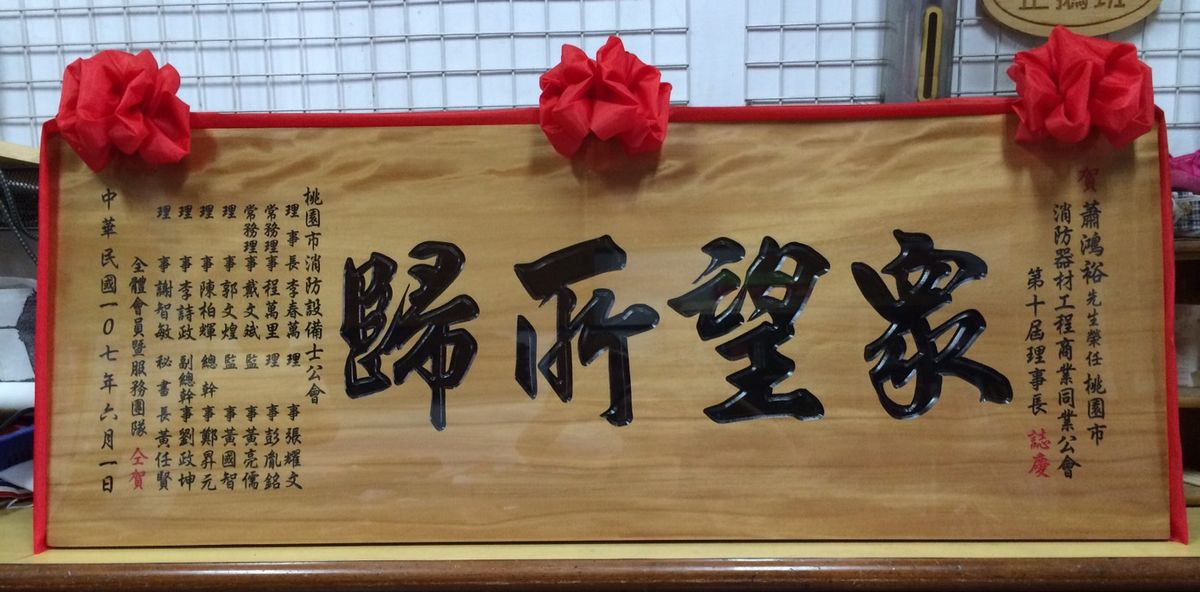 賀 蕭鴻裕先生榮任 桃園市
消防器材工程商業同業公會
第十屆理事長 誌慶
眾望所歸
桃園市消防設備士公會
理事長 李春萬 理事 張耀文
常務理事 程萬里 理事 彭胤銘
常務理事 戴文斌 監事 黃亮儒
理事 郭文煌 監事 黃國智
理事 陳柏輝 總幹事 鄭昇元
理事 李詩政 副總幹事 劉政坤
理事 謝智敏 秘書長 黃任賢
全體會員暨服務團隊 仝賀
中華民國一0七年六月一日